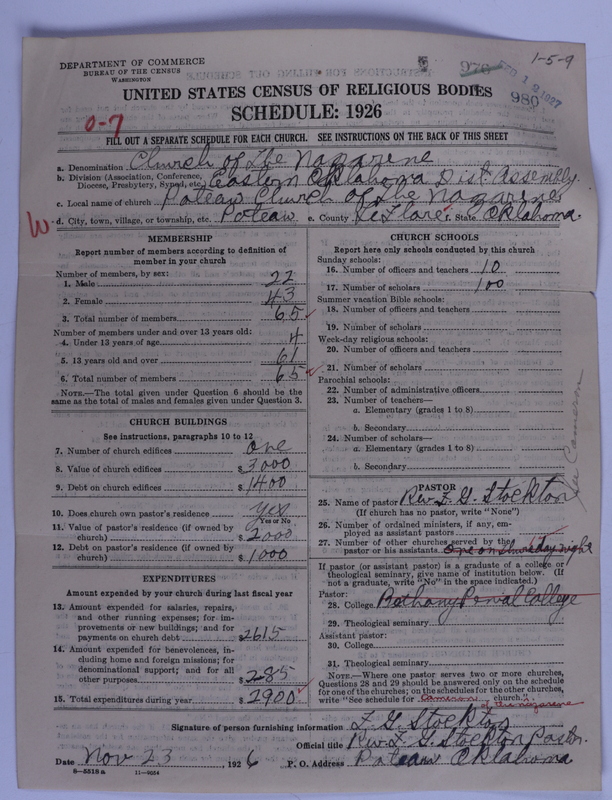 DEPARTMENT OF COMMERCE
BUREAU OF THE CENSUS
WASHINGTON
976
1-5-9
980
UNITED STATES CENSUS OF RELIGIOUS BODIES
SCHEDULE: 1926
0-7
FILL OUT A SEPARATE SCHEDULE FOR EACH CHURCH. SEE INSTRUCTIONS ON THE BACK OF THIS SHEET
a. Denomination Church of the Nazarene
b. Division (Association, Conference, Diocese, Presbytery, Synod, etc.) Eastern Oklahoma Dist. Assembly.
c. Local name of church Poteau Church of the Nazarene
W.
d. City, town, village, or township, etc. Poteau e. County LeFlore f. State Oklahoma
MEMBERSHIP
Report number of members according to definition of
member in your church
Number of members, by sex:
1. Male 22
2. Female 43
3. Total number of members 65
Number of members under and over 13 years old:
4. Under 13 years of age 4
5. 13 years old and over 61
6. Total number of members 65
NOTE.—The total given under Question 6 should be
same as the total of males and females given under Question 3.
CHURCH BUILDINGS
See instructions, paragraphs 10 to 12
7. Number of church edifices one
8. Value of church edifices $3000
9. Debt on church edifices $1400
10. Does church own pastor's residence yes
Yes or No
11. Value of pastor's residence (if owned by
church) $2000
12. Debt on pastor's residence (if owned by
church) $1000
EXPENDITURES
Amount expended by your church during last fiscal year
13. Amount expended for salaries, repairs,
and other running expenses; for im-
provements or new buildings; and for
payments on church debt $2615
14. Amount expended for benevolences, in-
cluding home and foreign missions; for
denominational support; and for all
other purposes $285
15. Total expenditures during year $2900
CHURCH SCHOOLS
Report here only schools conducted by this church
Sunday schools:
16. Number of officers and teachers 10
17. Number of scholars 100
Summer vacation Bible schools:
18. Number of officers and teachers
19. Number of scholars
Week-day religious schools:
20. Number of officers and teachers
21. Number of scholars
Parochial schools:
22. Number of administrative officers
23. Number of teachers—
a. Elementary (grades 1 to 8)
b. Secondary
24. Number of scholars—
a. Elementary (grades 1 to 8)
b. Secondary
See Cameron
PASTOR
25. Name of pastor Rev. Z. G. Stockton
(If church has no pastor, write "None")
26. Number of ordained ministers, if any, em-
ployed as assistant pastors
27. Number of other churches served by the
pastor or his assistants one on thursday night
If pastor (or assistant pastor) is a graduate of a college or
theological seminary, give name of institution below. (If
not a graduate, write "No" in the space indicated.)
Pastor:
28. College Bethany Penial College
29. Theological seminary
Assistant pastor:
30. College
31. Theological seminary
NOTE.—Where one pastor serves two or more churches,
Questions 28 and 29 should be answered only on the schedule
for one of the churches; on the schedules for the other churches,
write "See schedule for Cameron church."
of the nazarene
Signature of person furnishing information Z. G. Stockton
Official title Rev. Z. G. Stockton Pastor.
Date Nov 23, 1926 P. O. Address Poteau Oklahoma
8-5518a 11-9054